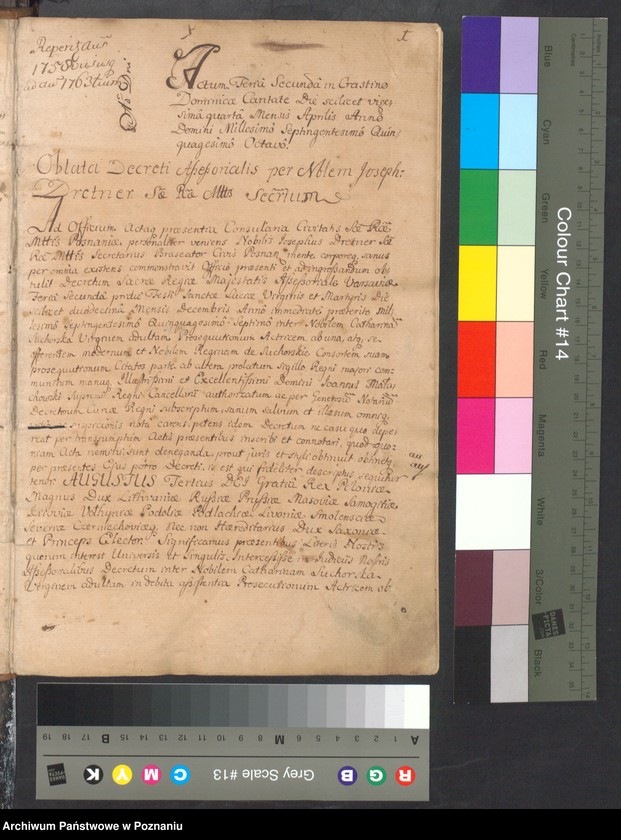 1
Actum Feria Secunda in Crastino
Dominicæ Cantate Die scilicet vige
sima quarta Mensis Aprilis Anno
Domini Millesimo Septingentesimo Quin
quagesimo Octavo.
Oblata Decreti Assessorialis per Nblem Joseph:
Dretner Sæ Ræ Mttis Secrium
Ad Officium Actaq præsentia Consularia Civitatis Sæ Ræ
Mttis Posnaniæ personaliter veniens Nobilis Josephus Dretner Sæ
Ræ Mttis Secretarius Braseator Civis Posnan mente corporeq sanus
per omnia existens Officio præsenti et ad ingrossandum ob
tulit Decretum Sacræ Regiæ Majestatis Assessoriale Varsaviæ
Feria Secunda Festi Sanctæ Luciæ Virginis et Martyris Die
scilicet duodecima Mensis Decembris Anno immediate præterito Mil
lesimo Septingentesimo Quinquagesimo Septimo inter Nobilem Catharinã
Suchorska Virginem adultam Actricem ab una, atq se
offerentem modernum et Nobilem Reginam de Suchorskie Consortem suam
Citatos parte ab altera prolatum sigillo Regni majori com
munitum manuq Illustrissimi et Excellentissimi Domini Joannis Mała
chowski Supremi Regni Cancellarii authorizatum ac per Generosum Notariũ
Decretorum Curiæ Regni subscriptum sanum salvum et illæsum omniq
suspicionis nota carens, petens idem Decretum ne casu quo depe
reat per transumptum Actis præsentibus inscribi et connotari, quod quo
niam Acta nemini sunt deneganda, prout juris et obtinuit
per præsentes Cujus potro Decreti is est qui fideliter descriptus sequitur
tenor. AUGUSTUS Tertius DEI Gratiâ Rex Poloniæ
Magnus Dux Lithvaniæ Russiæ Prussiæ Masoviæ Samogitiæ
Kijoviæ Volhyniæ Podoliæ Podlachiæ Livoniæ Smolensciæ
Severiæ Czerniechoviæq, Nec non Hæreditarius Dux Saxoniæ
et Princeps Elector. Significamus præsentibus Literis Nostris
quorum interest Universis et Singulis. Intercessisse in Judiciis Nostris
Assessorialibus Decretum inter Nobilem Catharinam Suchorska
Virginem adultam in debita assistentia Prosecutionum Actricem ab
Colour Chart #14
Blue
Cyan
Green
Yellow
Red
Magenta
White
3/Color
Black
Centimetres
DANES
PICTA
Grey Scale #13
A 1 2 3 4 5 6 M 8 9 10 11 12 13 14 15 B 17 18 19
R G B C M Y K
Archiwum Państwowe w Poznaniu